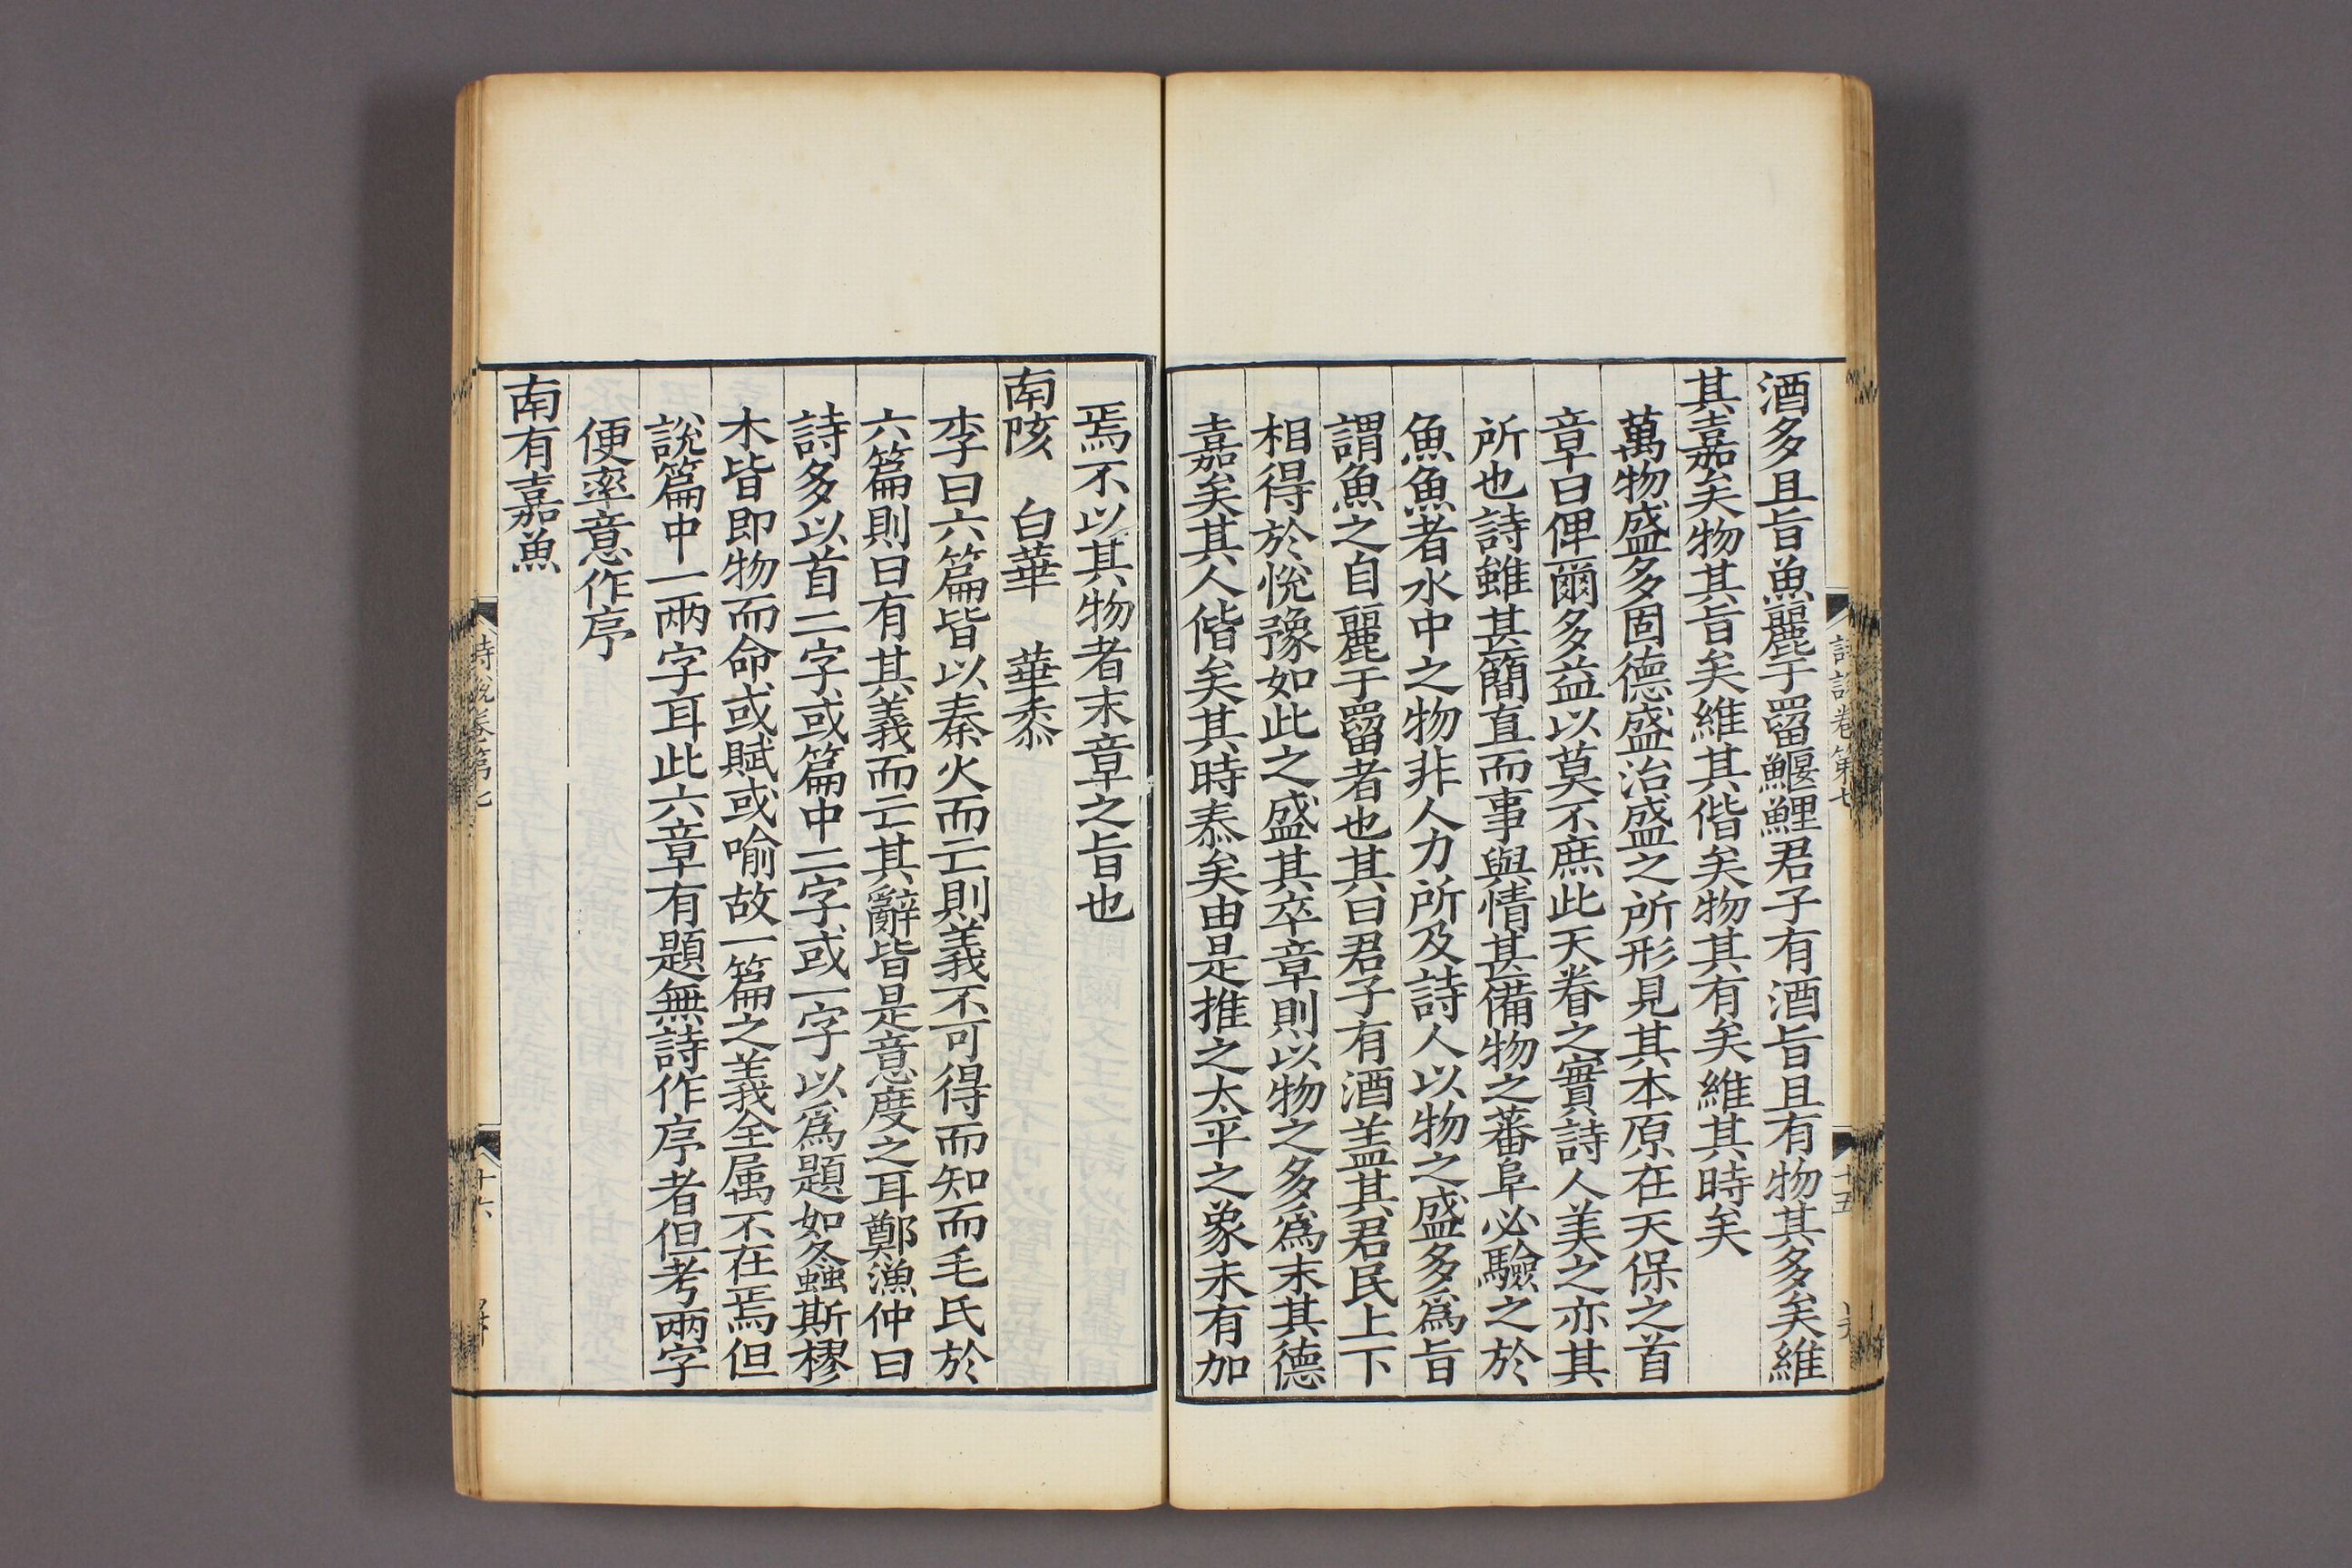 酒多且旨魚麗于罶鰋鯉君子有酒旨且有物其多矣維
其嘉矣物其旨矣維其偕矣物其有矣維其時矣
萬物盛多固德盛治盛之所形見其本原在天保之首
章曰俾爾多益以莫不庶此天眷之實詩人美之亦其
所也詩雖甚簡直而事與情甚備物之蕃阜必驗之於
魚魚者水中之物非人力所及詩人以物之盛多爲旨
謂魚之自麗于罶者也其曰君子有酒盖其君民上下
相得於悅豫如此之盛其卒章則以物之多爲末其德
嘉矣其人偕矣其時泰矣由是推之太平之象未有加
焉不以其物者末章之旨也
南陔　白華　華黍
李曰六篇皆以秦火而亾則義不可得而知而毛氏於
六篇則曰有其義而亾其辭皆是意度之耳鄭漁仲曰
詩多以首二字或篇中二字或一字以爲題如螽斯樛
木皆即物而命或賦或喻故一篇之義全属不在焉但
說篇中一兩字耳此六章有題無詩作序者但考兩字
便率意作序
南有嘉魚
詩說卷第七
十五
詩說卷第七
十六